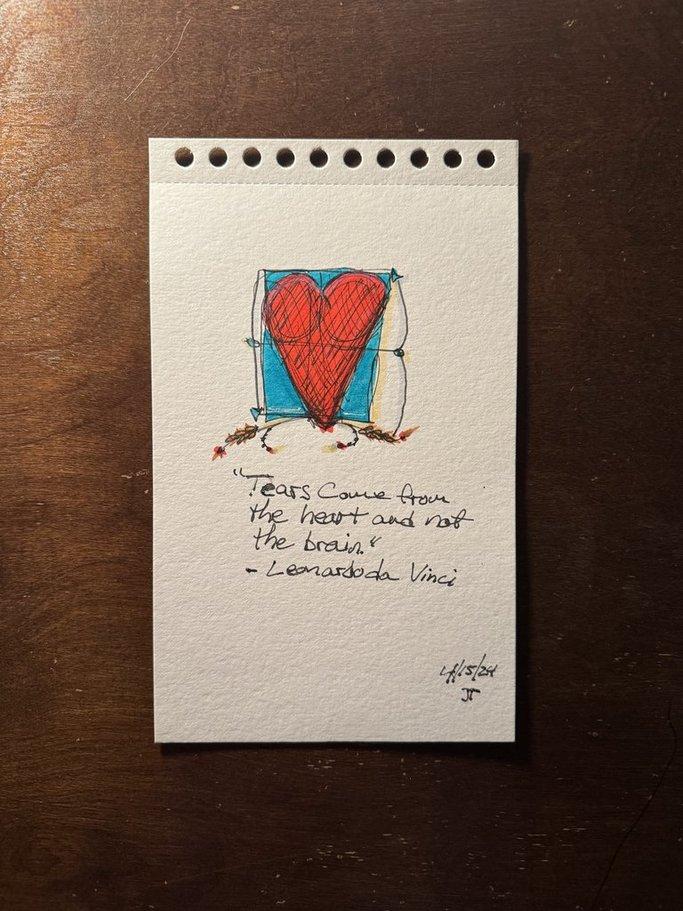 "Tears Come from
the heart and not
the brain."
- Leonardo da Vinci
4/15/24
JT